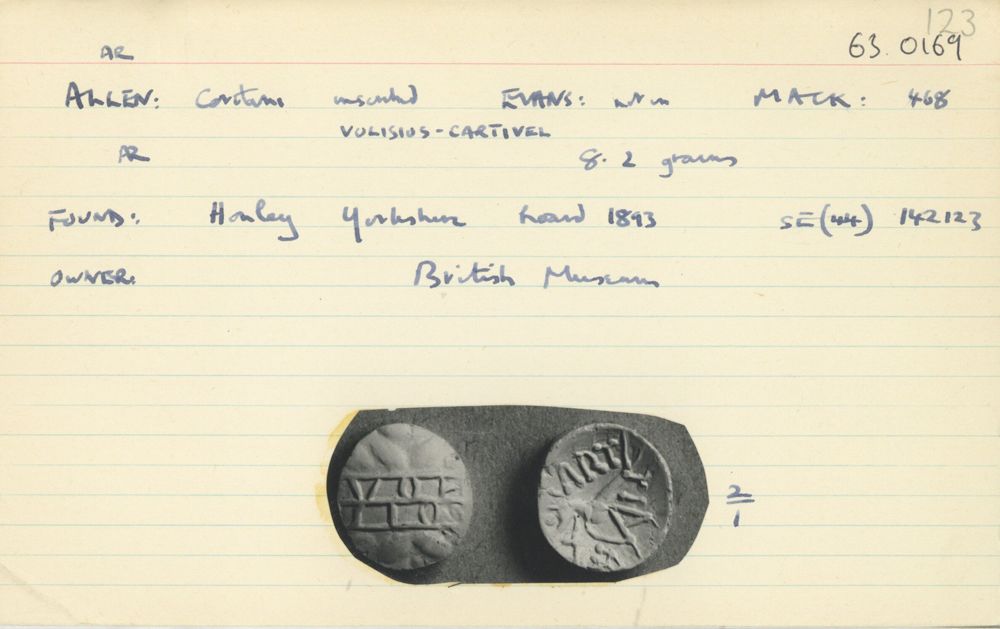 123
63.0169
AR
ALLEN: Coritani inscribed EVANS: not in MACK: 468
VOLISIOS-CARTIVEL
AR 8.2 grams
FOUND: Honley Yorkshire hoard 1893 SE(44) 142123
OWNER: British Museum
CARTI
2/1